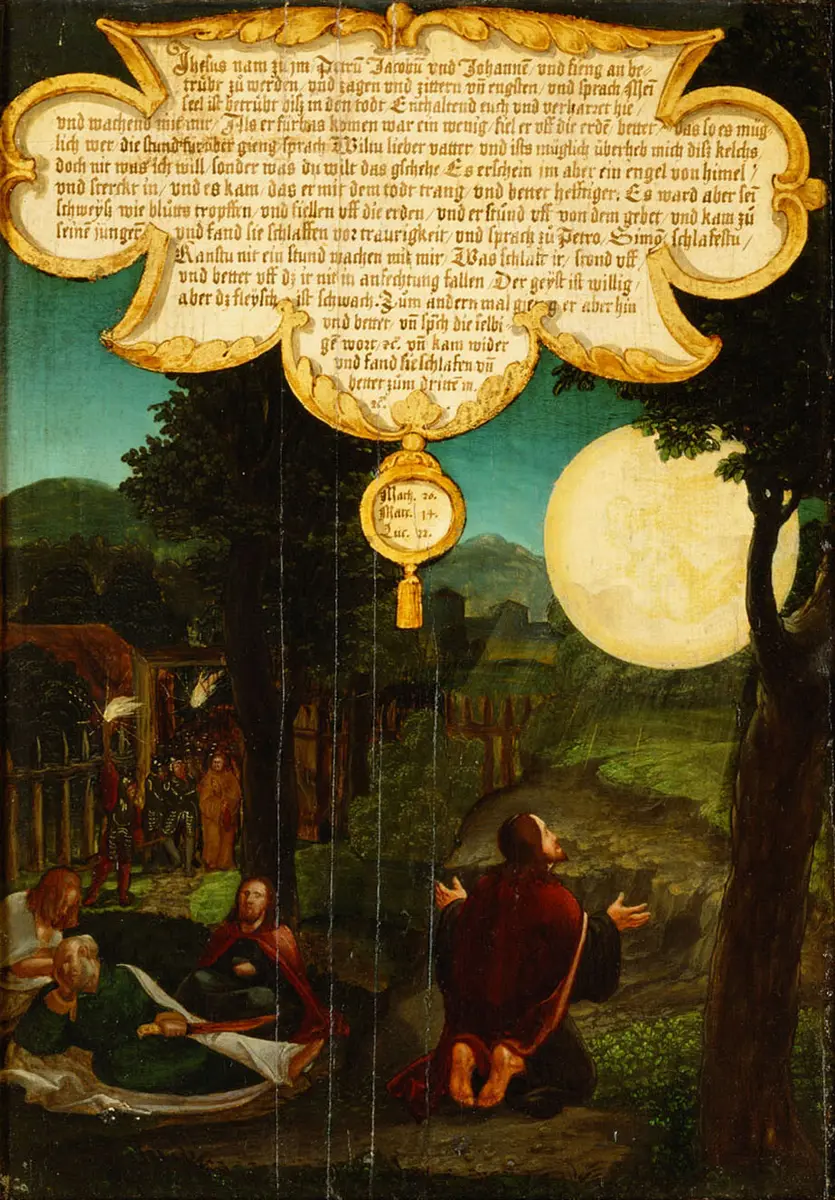 Jhesus nam zu jm Petrū Jacobū vnd Johannē / vnd fieng an be-
trübt zu werden / vnd zagen vnd zittern vñ engsten / vnd sprach Mein
seel ist betrübt bisz in den todt Enthaltend euch vnd verharret hie /
vnd wachend mit mir / Als er fürbas komen war ein wenig / fiel er vff die erdē / bettet / das so es müg-
lich wer / die stund fürüber gieng / sprach Wiltu lieber vatter / vnd ists müglich überheb mich disz kelchs /
doch nit was ich will / sonder was du wilt das gschehe Es erschein im aber ein engel von himel /
vnd sterckt in / vnd es kam / das er mit dem todt rang / vnd bettet hefftiger / Es ward aber sein
schweysz wie blůtts tropffen / vnd fiellen vff die erden / vnd er stůnd vff von dem gebet / vnd kam zů
seinē jungern / vnd fand sie schlaffen vor traurigkeit / vnd sprach zů Petro / Simō / schlafestu /
Kanstu nit ein stund wachen mit mir / Was schlaft ir / stond vff /
vnd bettet vff dz ir nie in anfechtung fallen / Der geyst ist willig /
aber dz fleysch ist schwach. Zům andern mal gieng er aber hin
vnd bettet / vñ sp̄ch die selbi-
gē wort / ꝛc. vñ kam wider
vnd fand sie schlafen vñ
bettet zům drittē m.
ꝛc.
Math. 26.
Marc. 14.
Luc. 22.